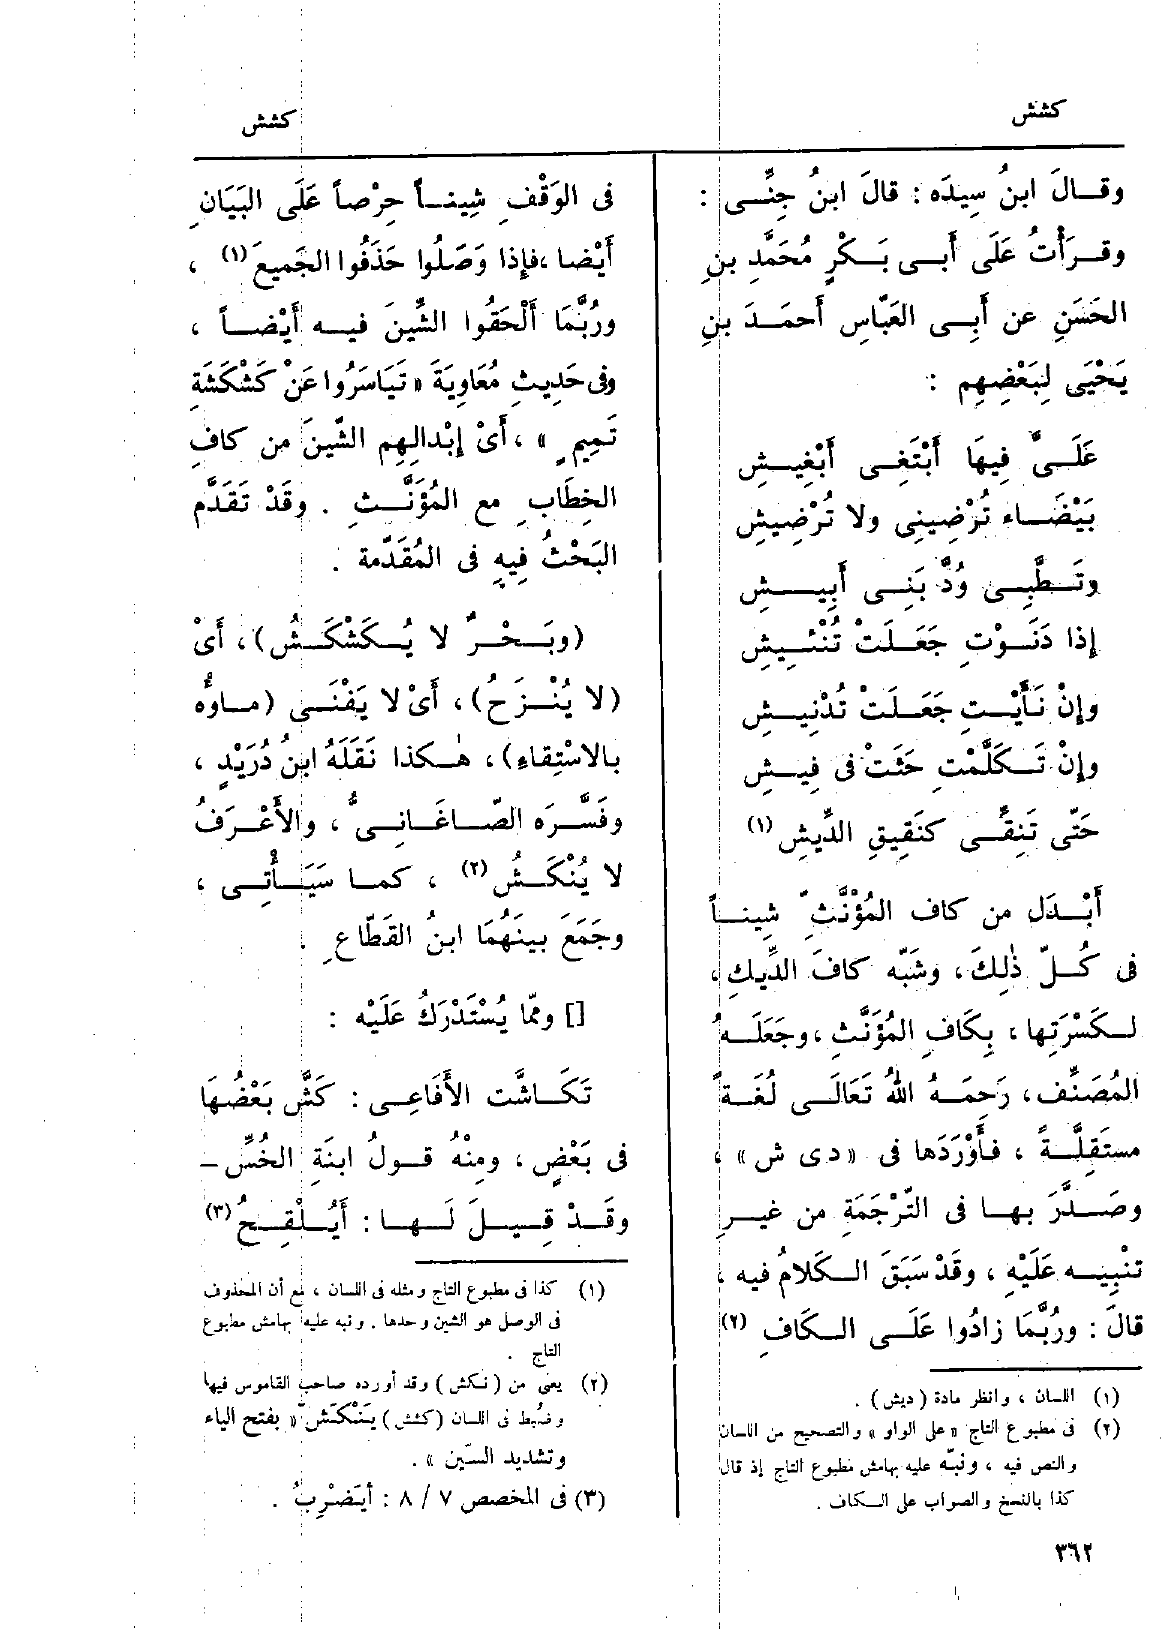 كشش
كشش
وقالَ ابنُ سِيدَه : قالَ ابنُ جِنِّى :
وقرَأْتُ عَلَى أَبى بَكْرٍ مُحَمَّدِ بنِ
الحَسَنِ عن أَبِى العَبّاسِ أَحمَدَ بنِ
يَحْيَى لِبَعْضِهِم :
عَلَىَّ فِيهَا أَبْتَغِى أَبْغِيشِ
بَيْضَاء تُرْضِينِى ولا تُرْضِيشِ
وتَطَّبِى وُدَّ بَنِى أَبِيشِ
إِذا دَنَوْتِ جَعَلَتْ تُنْئِيشِ
وإِنْ نَأَيْتِ جَعَلَتْ تُدْنِيشِ
وإِنْ تَكَلَّمْتِ حَثَتْ فى فِيشِ
حَتَّى تَنِقِّى كنَقِيقِ الدِّيشِ (١)
أَبْدَل من كاف المُؤْنَّثِ شِيناً
فى كُلِّ ذٰلِكَ ، وشَبَّه كافَ الدِّيكِ ،
لكَسْرَتِها ، بِكَافِ المُؤَنَّثِ ، وجَعَلَهُ
المُصَنِّف ، رَحِمَهُ اللهُ تَعَالَى لُغَةً
مستَقِلَّةً ، فأَوْرَدَها فى « د ى ش » ،
وصَدَّرَ بها فى التَّرْجَمَةِ من غيرِ
تنْبِيه عَلَيْهِ ، وقَدْ سَبَقَ الكَلامُ فيه ،
قالَ : ورُبَّمَا زادُوا عَلَى الكافِ (٢)
(١) اللسان ، وانظر مادة (ديش) .
(٢) فى مطبوع التاج « على الواو » والتصحيح من اللسان
والنص فيه ، ونبّه عليه بهامش مطبوع التاج إذ قال
كذا بالنسخ والصواب على الكاف .
فى الوَقْفِ شِيناً حِرْصاً عَلَى البَيَانِ
أَيْضا ، فإِذا وَصَلُوا حَذَفُوا الجَمِيعَ (١) ،
ورُبَّمَا أَلْحَقُوا الشِّينَ فيه أَيْضاً ،
وفى حَدِيثِ مُعَاوِيَةَ « تَيَاسَرُوا عَنْ كَشْكَشَةِ
تَمِيمٍ » ، أَىْ إِبْدالِهِم الشِّينَ من كافِ
الخِطَابِ مع المُؤَنَّثِ . وقَدْ تَقَدَّم
البَحْثُ فِيهِ فى المُقَدّمة .
(وبَحْرٌ لا يُكَشْكَشُ) ، أَىْ
(لا يُنْزَحُ) ، أَىْ لا يَفْنَى (ماؤُه
بالاسْتِقاءِ) ، هٰكذا نَقَلَهُ ابنُ دُرَيْدٍ ،
وفَسَّرَه الصّاغَانِىُّ ، والأَعْرَفُ
لا يُنْكَشُ (٢) ، كما سَيَأْتِى ،
وجَمَعَ بينَهُمَا ابنُ القَطّاعِ .
[] وممّا يُسْتَدْرَكُ عَلَيْه :
تَكَاشَّت الأَفَاعِى : كَشَّ بَعْضُهَا
فى بَعْضٍ ، ومِنْهُ قولُ ابنَةِ الخُسِّ –
وقَدْ قِيلَ لَها : أَيُلْقِحُ (٣)
(١) كذا فى مطبوع التاج ومثله فى اللسان ، مع أن المحذوف
فى الوصل هو الشين وحدها . ونبه عليه بهامش مطبوع
التاج .
(٢) يعنى من (نكش) وقد أورده صاحب القاموس فيها
وضُبط فى اللسان (كشش) يَنْكَشّ « بفتح الياء
وتشديد السّين » .
(٣) فى المخصص ٧ / ٨ : أيَضْرِبُ .
٣٦٢